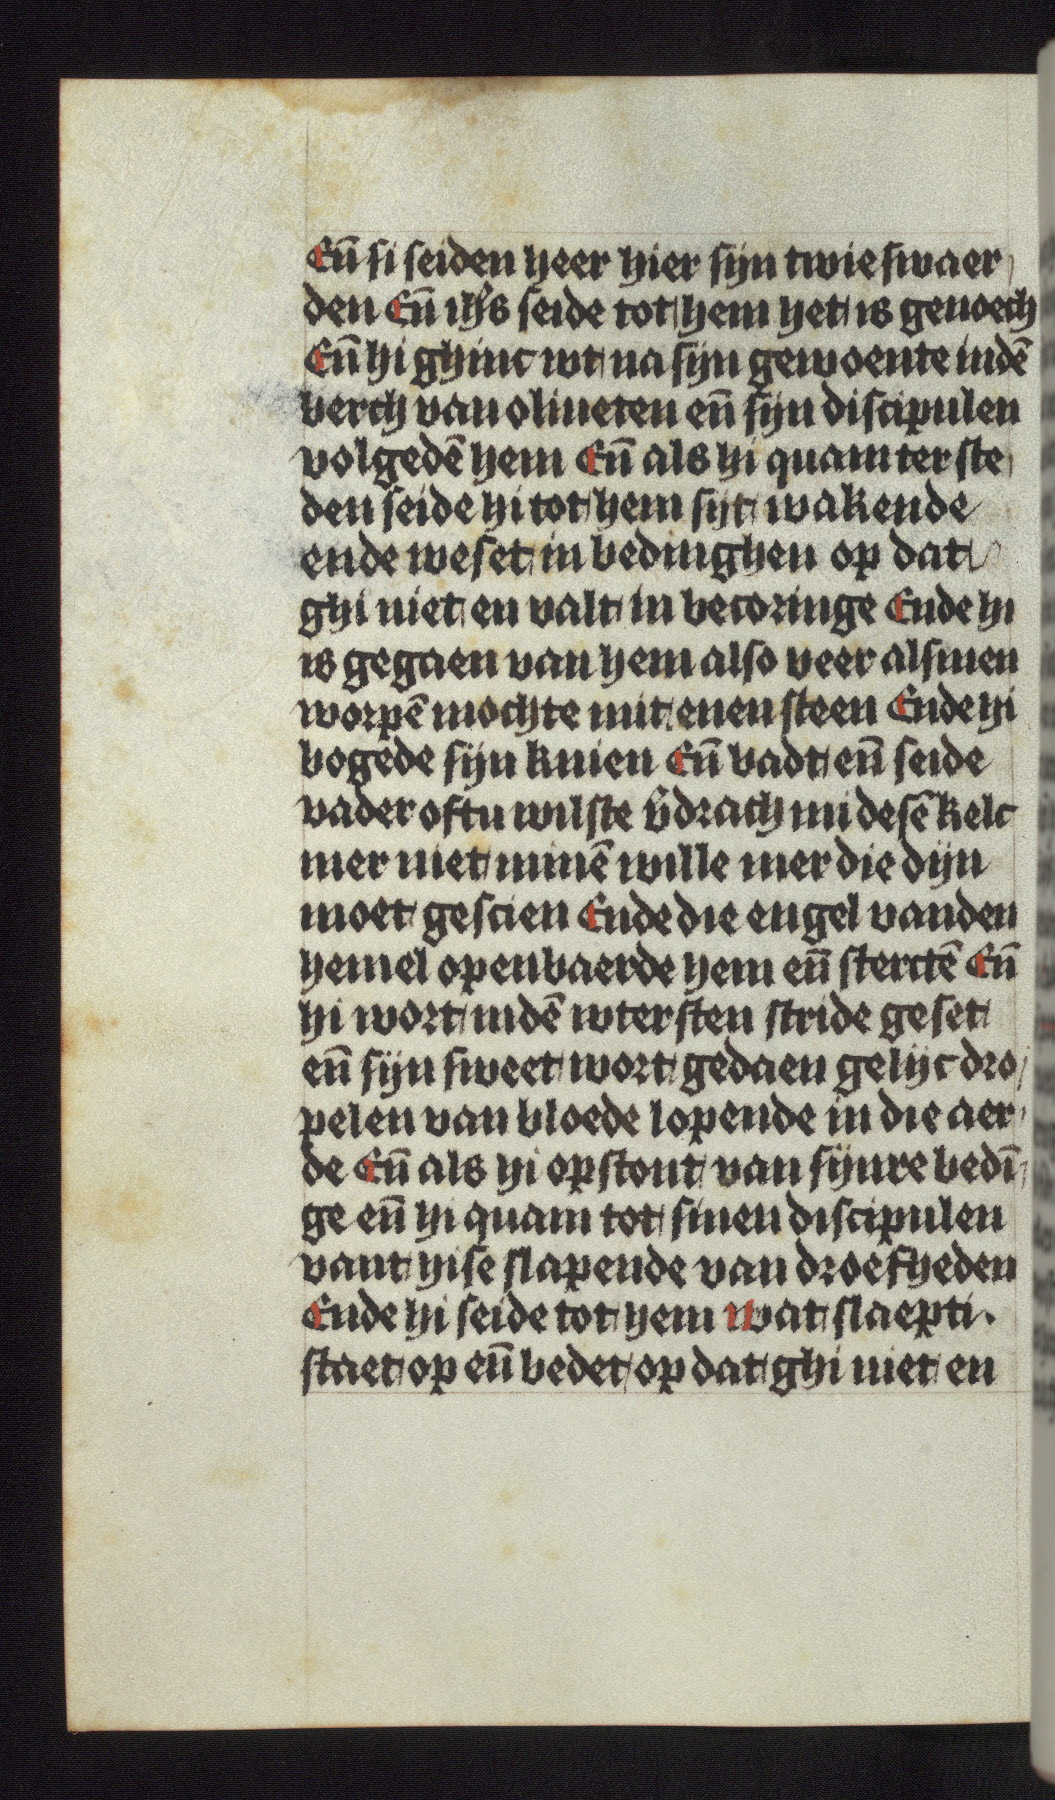 Eñ si seiden heer hier sijn twie swaer
den Eñ ihūs seide tot hem het is genoech
Eñ hi ghinc wt na sijn gewoente indē
berch van oliueten eñ sijn discipulen
volgedē hem Eñ als hi quam ter ste
den seide hi tot hem sijt wakende
ende weset in bedinghen op dat
ghi niet en valt in becoringe Ende hi
is gegaen van hem also veer alsmen
worpē mochte mit enen steen Ende hi
bogede sijn knien Eñ badt eñ seide
vader oftu wilste v̄drach mi desē kelc
mer niet minē wille mer die dijn
moet gescien Ende die engel vanden
hemel openbaerde hem eñ sterctē Eñ
hi wort indē wtersten stride geset
eñ sijn sweet wort gedaen gelijc dro
pelen van bloede lopende in die aer
de Eñ als hi opstont van sijnre bedī
ge eñ hi quam tot sinen discipulen
vant hise slapende van droefheden
Ende hi seide tot hem Wat slaepti.
staet op eñ bedet op dat ghi niet en